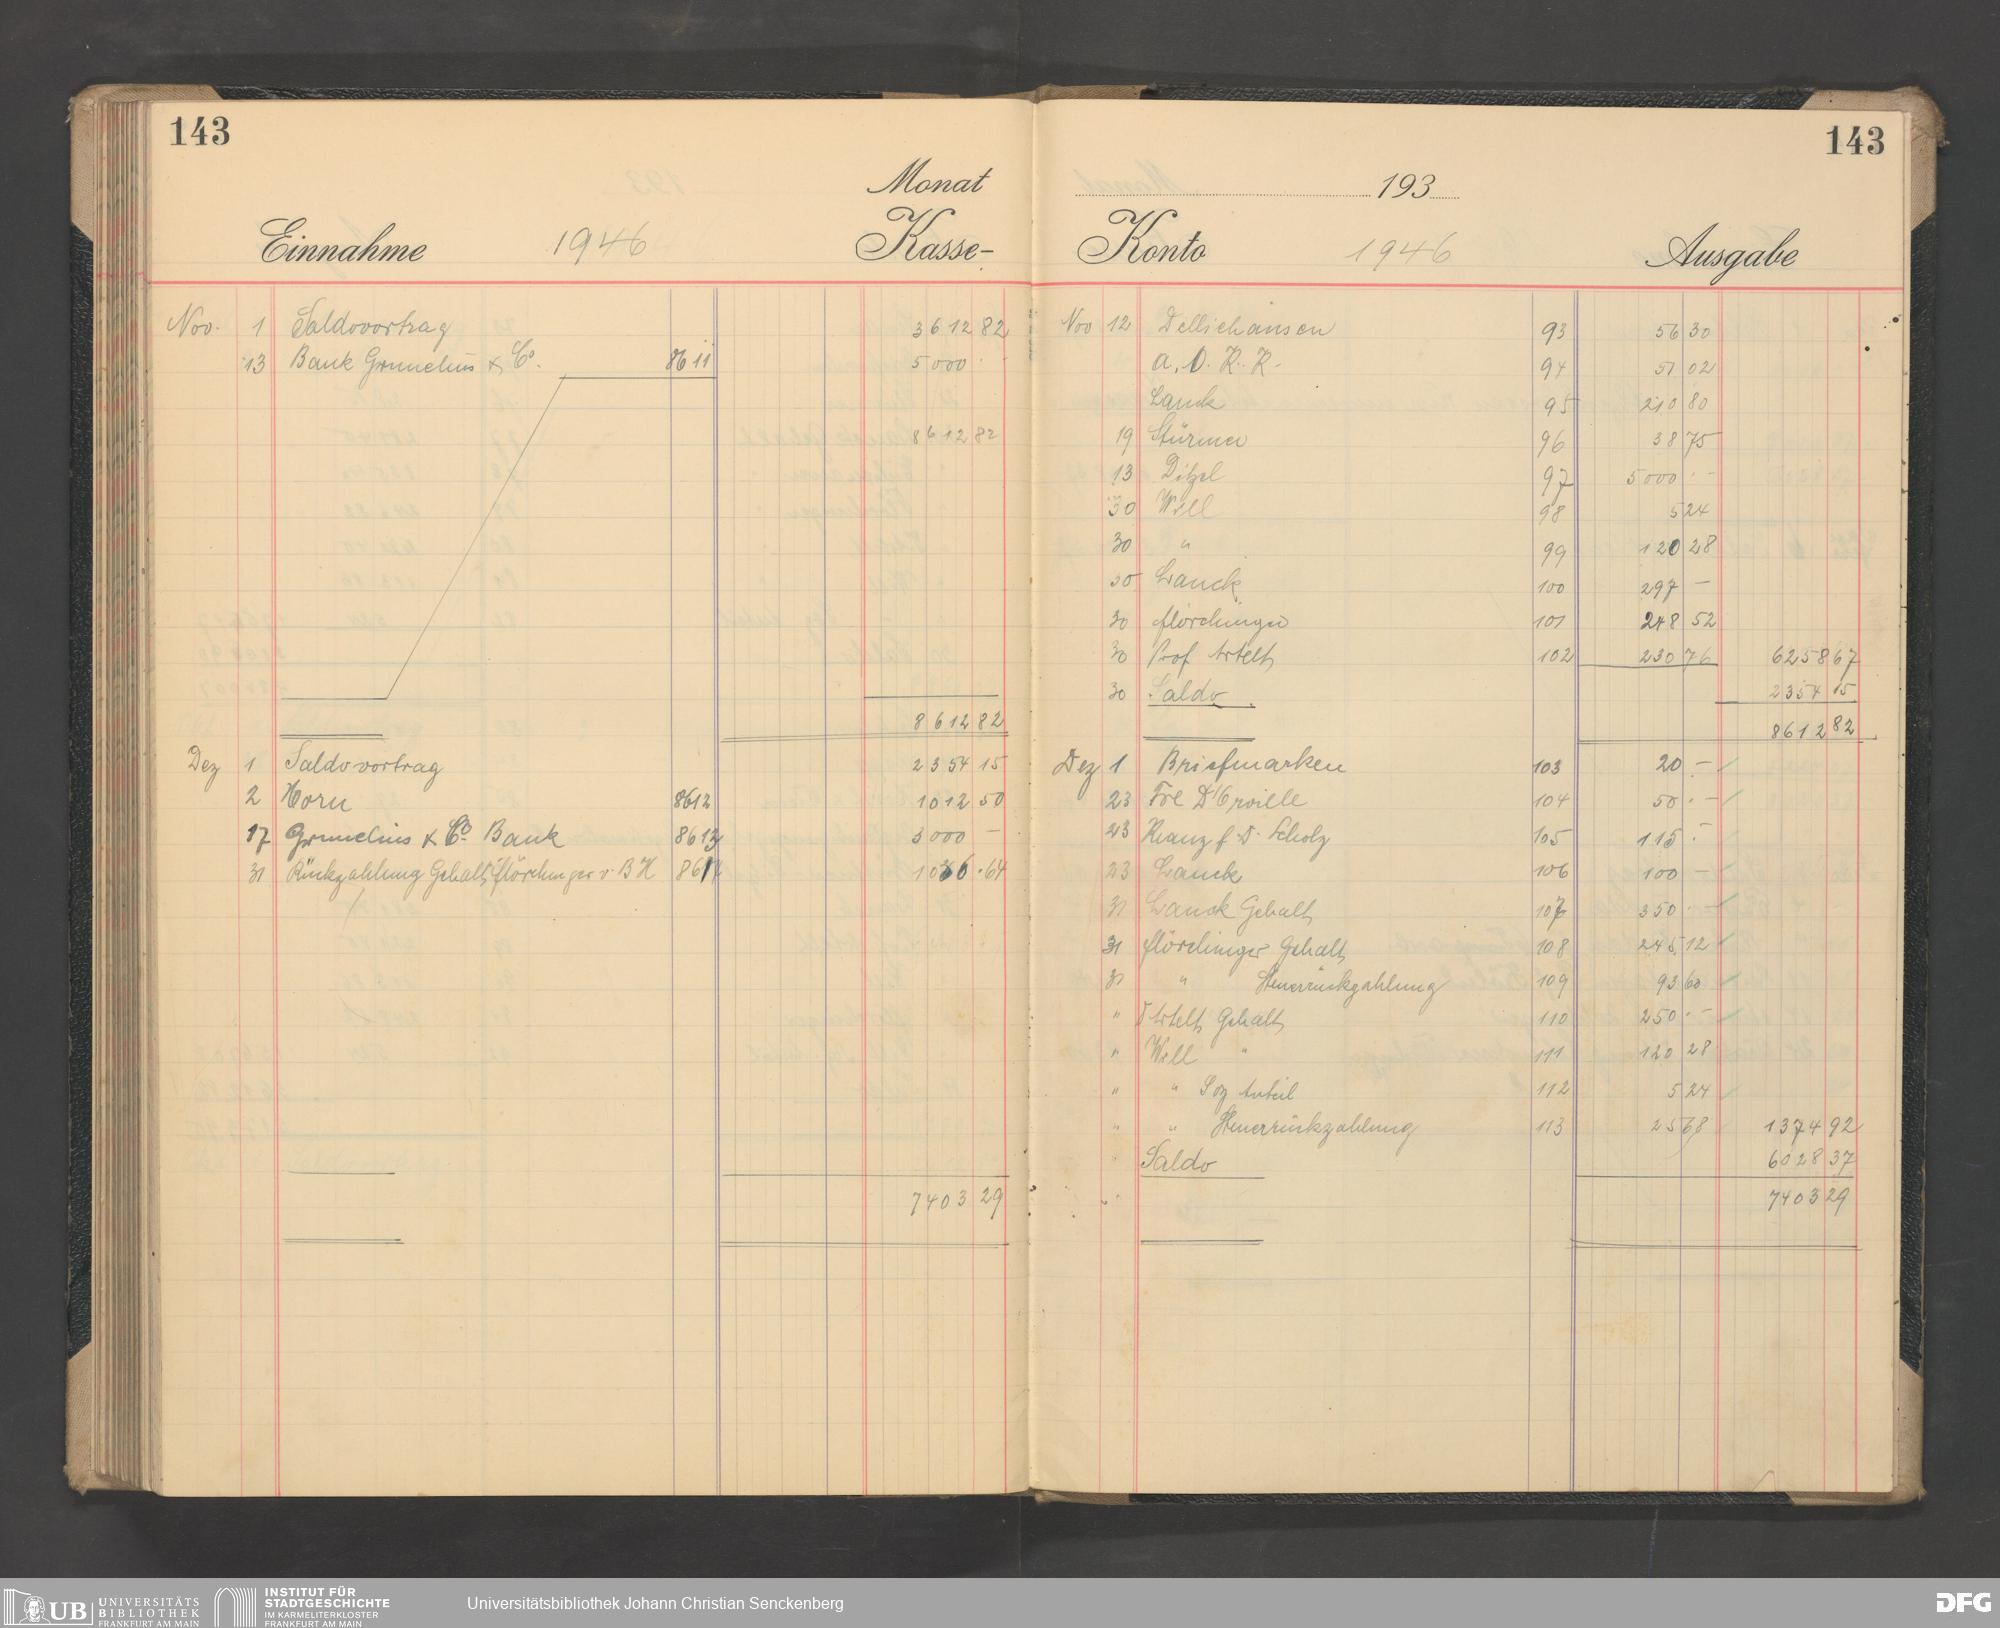 143
Monat
Einnahme 1946 Kasse-
Nov. 1 Saldovortrag 3612 82
13 Bank Grunelius & Co. 8611 5000 -
8612 82
8612 82
Dez 1 Saldovortrag 2354 15
2 Horn 8612 1012 50
17 Grunelius & Co. Bank 8613 3000 —
31 Rückzahlung Gehalt Flörchinger v. B H 8614 1036.64
7403 29
143
193
Konto 1946 Ausgabe
Nov 12 Dellichausen 93 56 30
A. O. K. K. 94 51 02
Lanck 95 210 80
19 Stürmer 96 38 75
13 Ditzel 97 5000 . -
30 Will 98 5 24
30 " 99 120 28
30 Lanck 100 297 —
30 Flörchinger 101 248 52
30 Prof Artelt 102 230 76 6258 67
30 Saldo 2354 15
8612 82
Dez 1 Briefmarken 103 20 . —
23 Frl D'Orville 104 50 . —
23 Kranz f. D. Scholz 105 115 . —
23 Lanck 106 100 —
31 Lanck Gehalt 107 350 . -
31 Flörchinger Gehalt 108 245 12
31 " Steuerrückzahlung 109 93 60
" Artelt Gehalt 110 250 . -
" Will " 111 120 28
" " Soz Anteil 112 5 24
" " Steuerrückzahlung 113 25 68 1374 92
Saldo 6028 37
7403 29
UB UNIVERSITÄTS
BIBLIOTHEK
FRANKFURT AM MAIN
INSTITUT FÜR
STADTGESCHICHTE
IM KARMELITERKLOSTER
FRANKFURT AM MAIN
Universitätsbibliothek Johann Christian Senckenberg
DFG